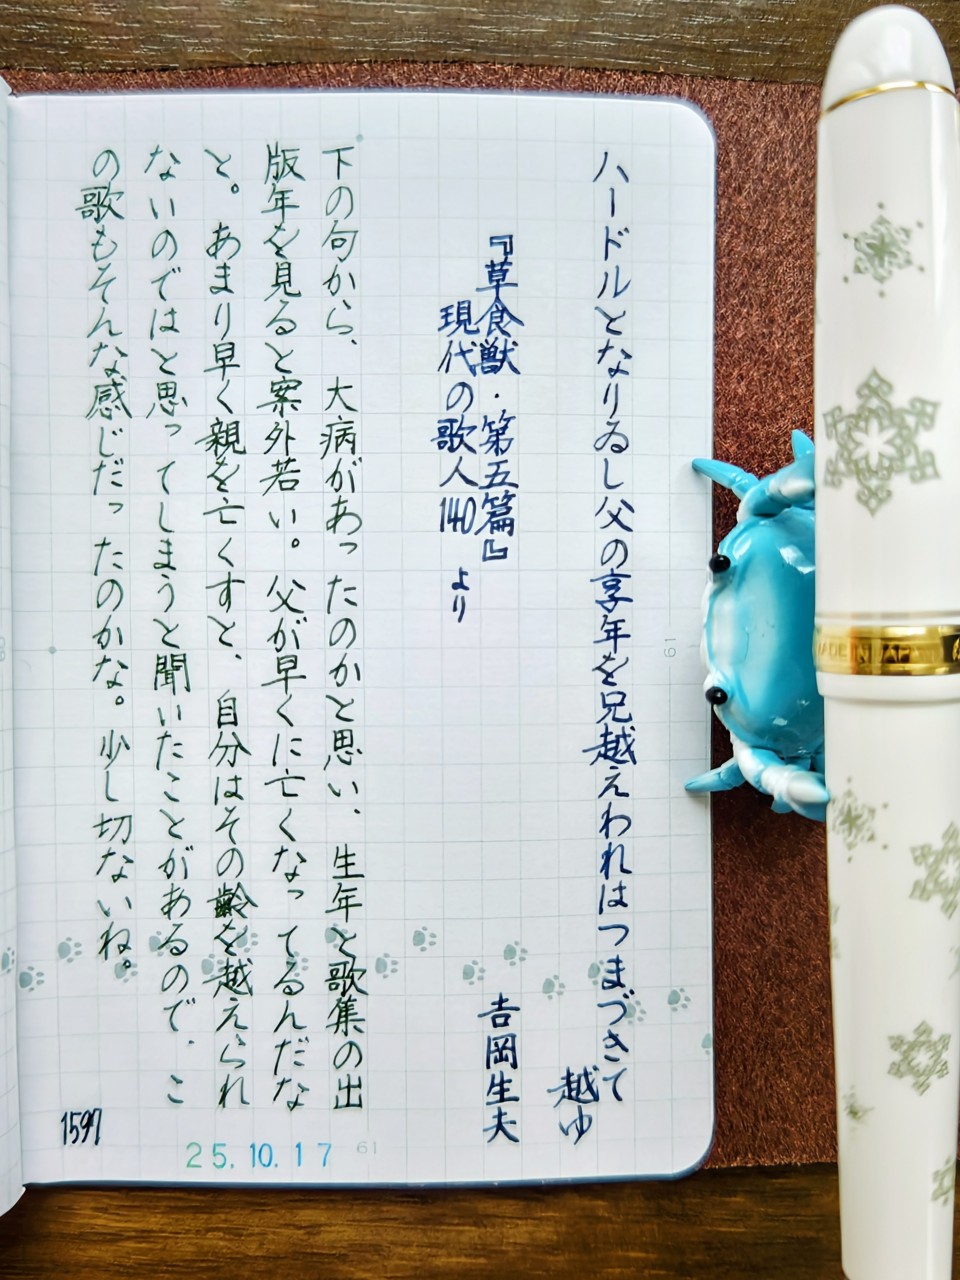 ハードルとなりゐし父の享年を兄越えわれはつまづきて
越ゆ
『草食獣・第五篇』
吉岡生夫
現代の歌人140 より
下の句から、大病があったのかと思い、生年と歌集の出
版年を見ると案外若い。父が早くに亡くなってるんだな
と。あまり早く親を亡くすと、自分はその齢を越えられ
ないのではと思ってしまうと聞いたことがあるので、こ
の歌もそんな感じだったのかな。少し切ないね。
1597
25.10.17
61
61
MADE IN JAPAN